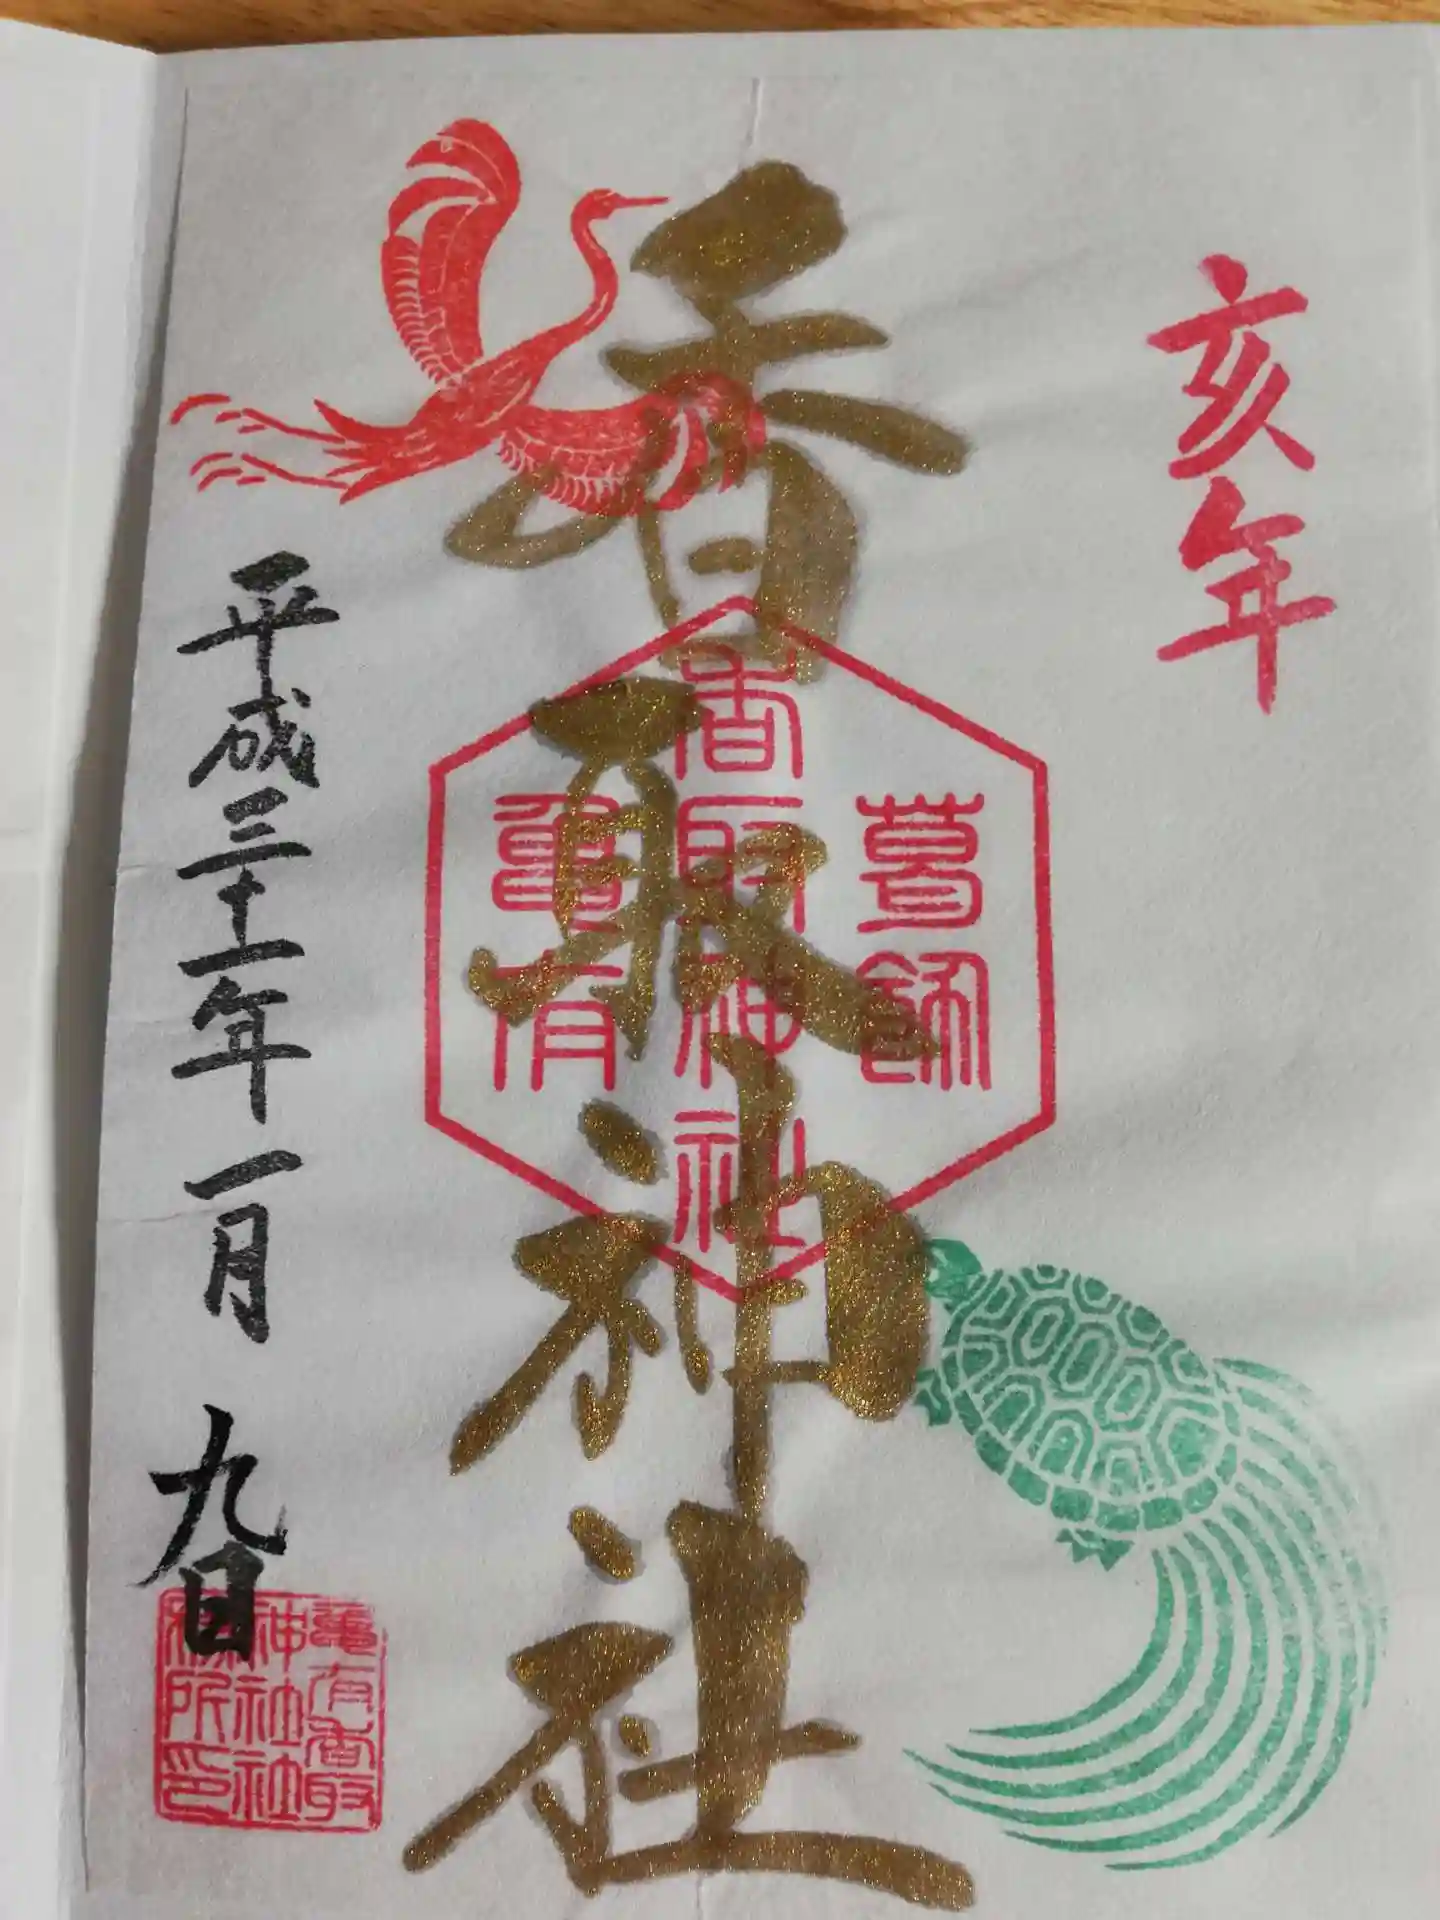 亥年
香取神社
葛飾
香取神社
亀有
平成三十一年一月九日
亀有香取
神社社
務所印